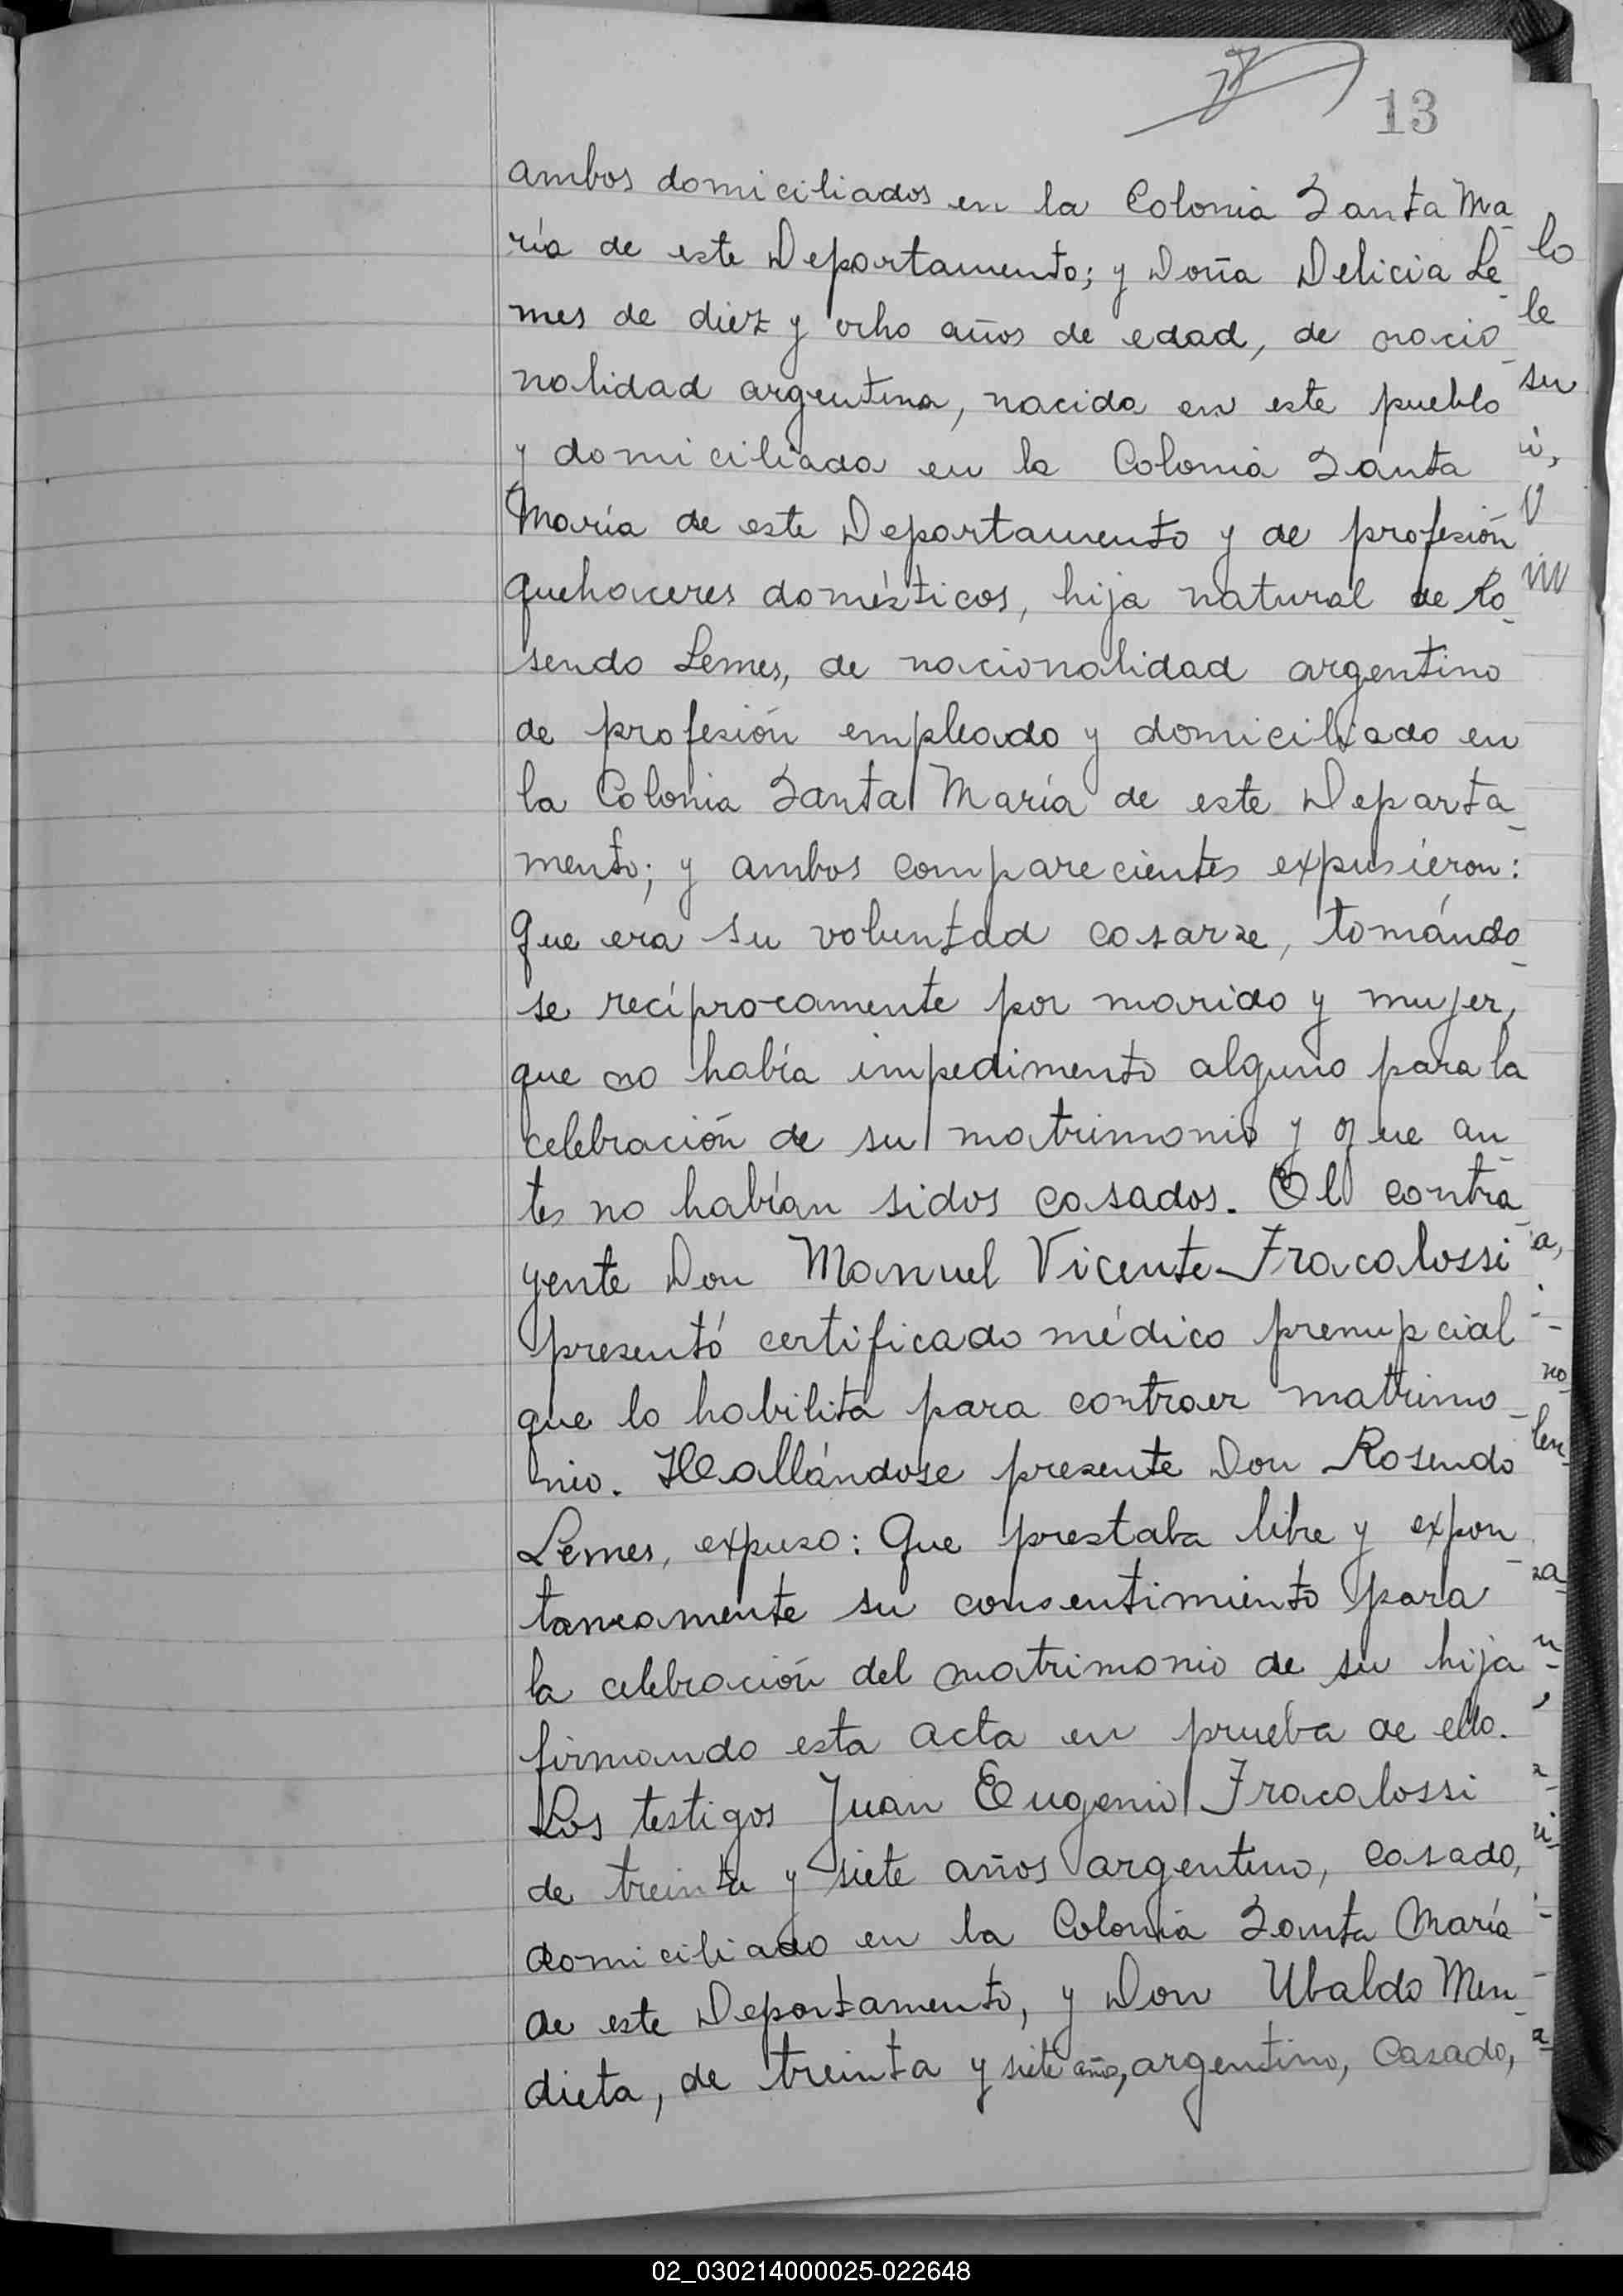 13
ambos domiciliados en la Colonia Santa Ma-
ría de este Departamento; y Doña Delicia Le-
mes de diez y ocho años de edad, de nacio-
nalidad argentina, nacida en este pueblo
y domiciliada en la Colonia Santa
María de este Departamento y de profesión
quehaceres domésticos, hija natural de Ro-
sendo Lemes, de nacionalidad argentino
de profesión empleado y domiciliado en
la Colonia Santa María de este Departa-
mento; y ambos comparecientes expusieron:
Que era su voluntad casarse, tomándo-
se recíprocamente por marido y mujer,
que no había impedimento alguno para la
celebración de su matrimonio y que an-
tes no habían sidos casados. El contra-
yente Don Manuel Vicente Fracalossi
presentó certificado médico prenupcial
que lo habilita para contraer matrimo-
nio. Hallándose presente Don Rosendo
Lemes, expuso: Que prestaba libre y expon-
taneamente su consentimiento para
la celebración del matrimonio de su hija
firmando esta acta en prueba de ello.
Los testigos Juan Eugenio Fracalossi
de treinta y siete años argentino, casado,
domiciliado en la Colonia Santa María
de este Departamento, y Don Ubaldo Men-
dieta, de treinta y siete años, argentino, casado,
lo
le
su
02_030214000025-022648